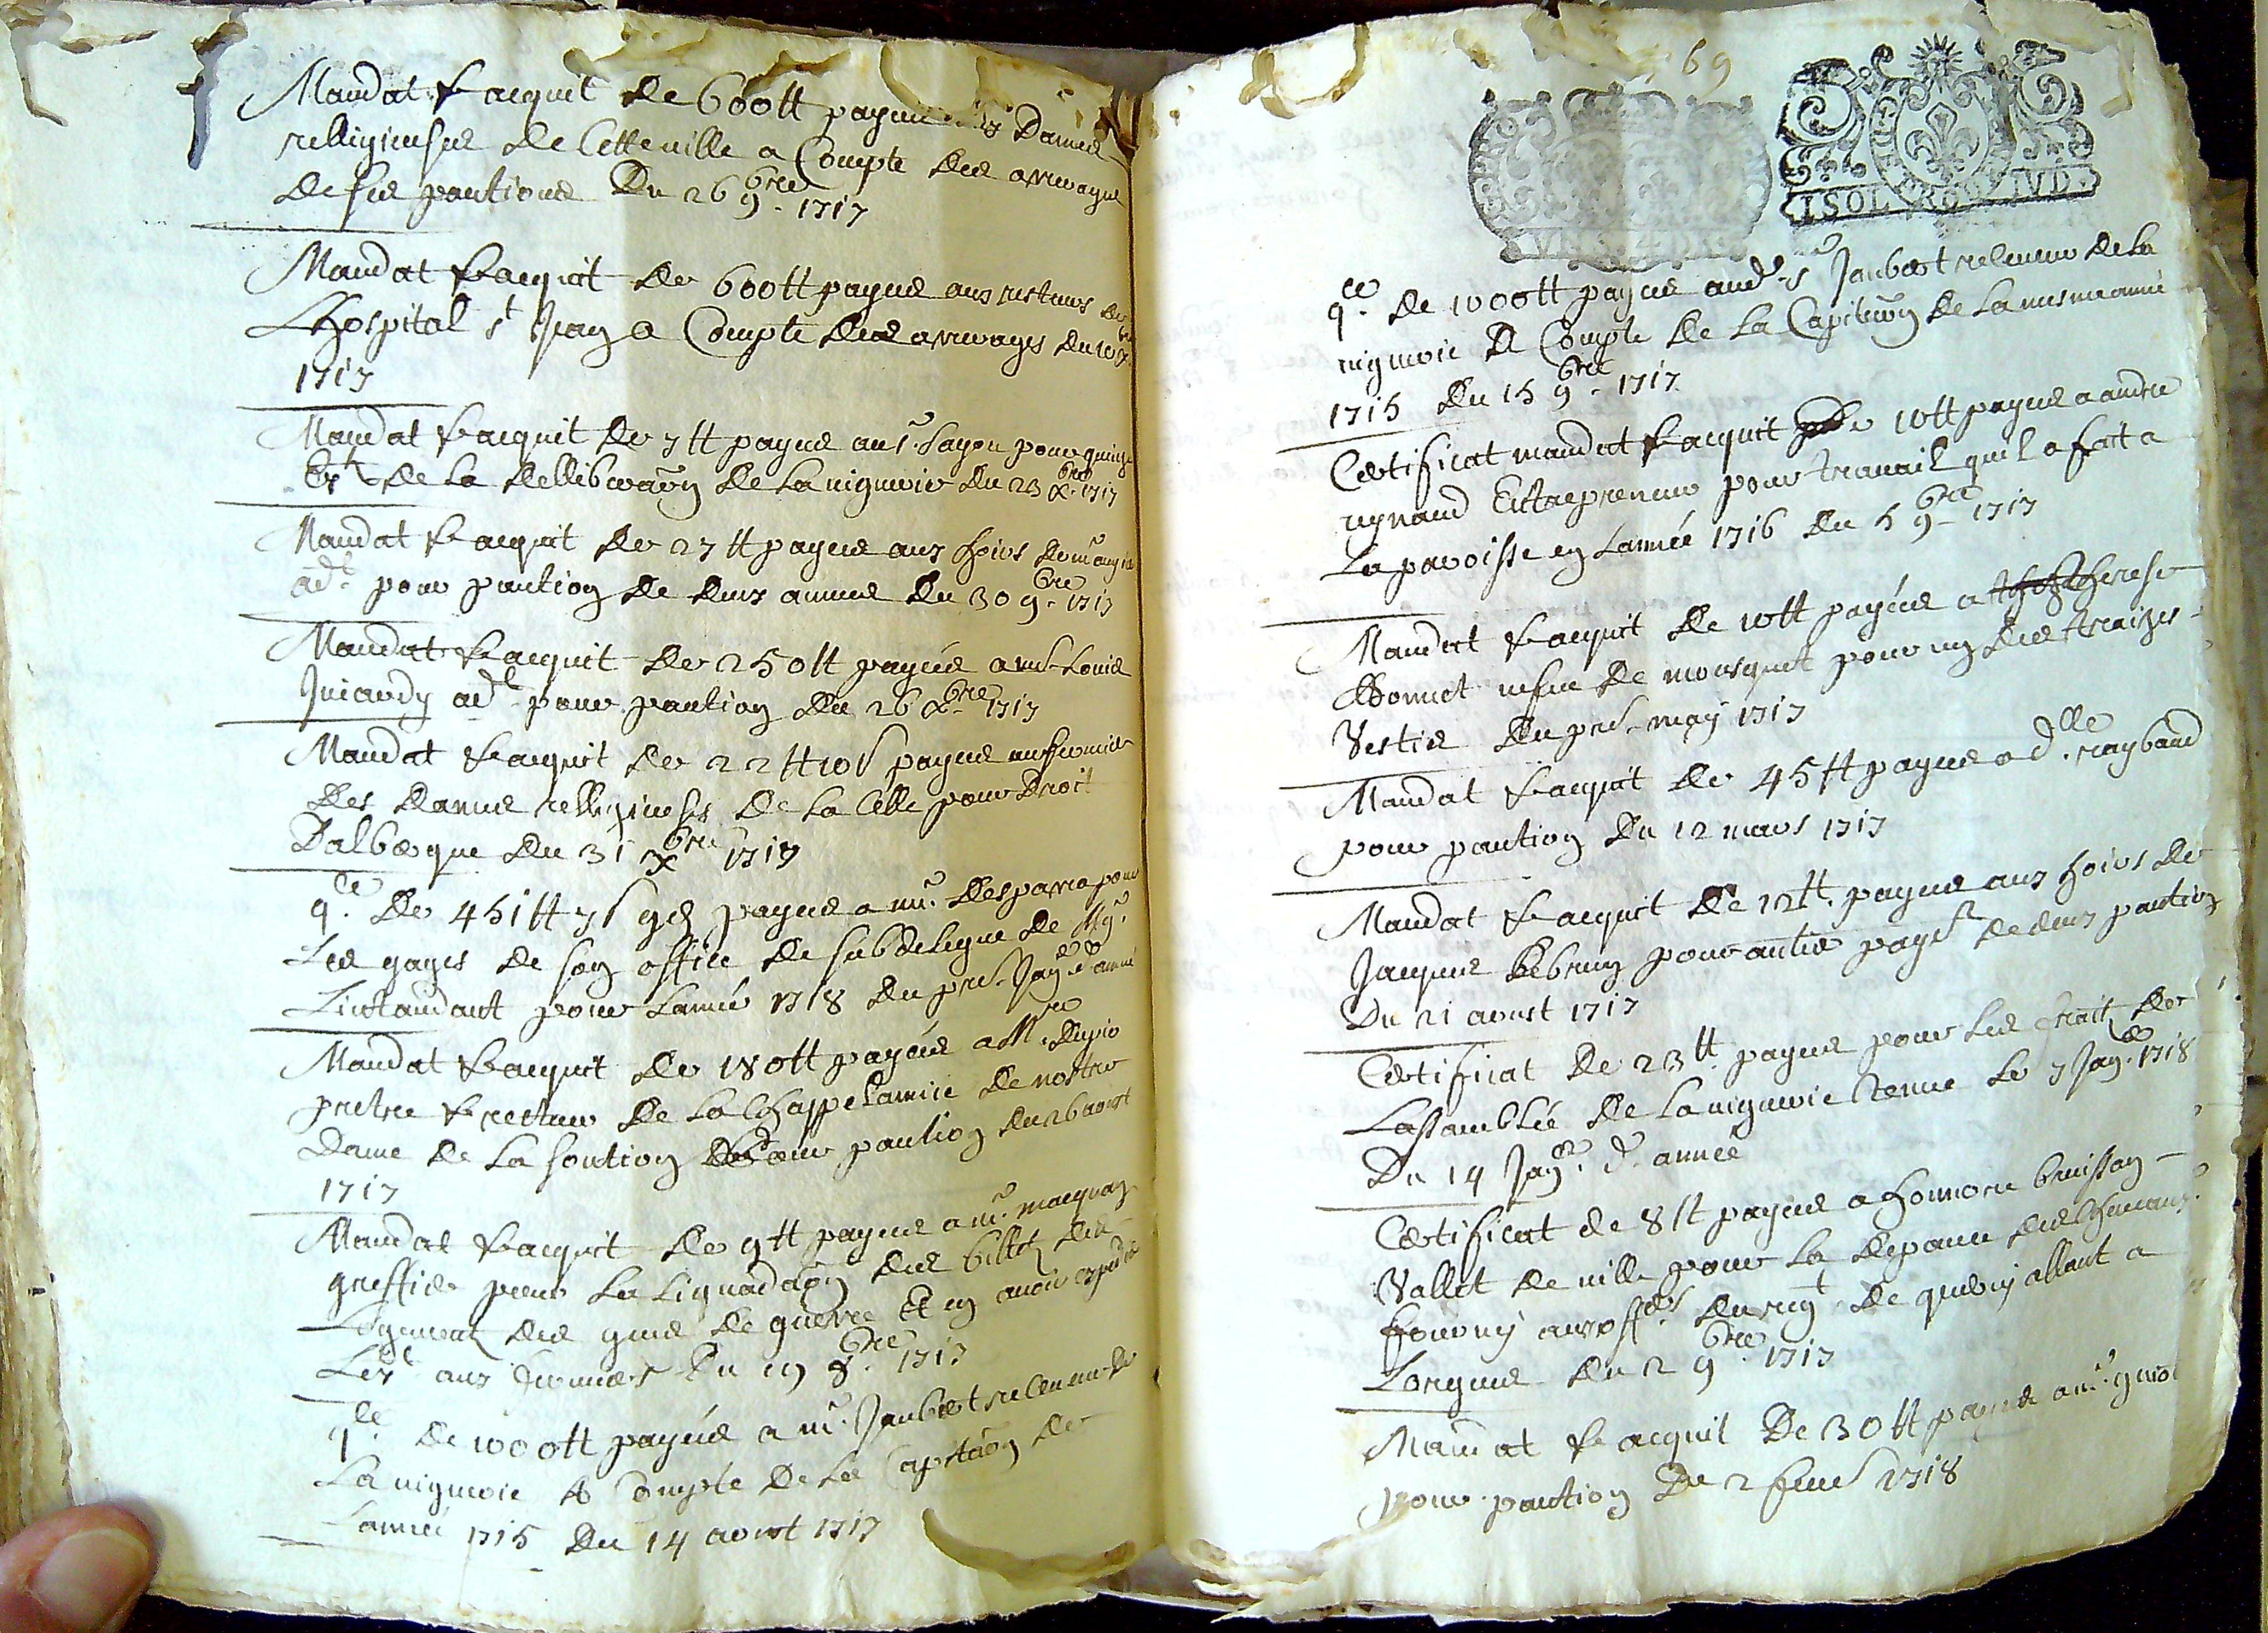 Mandat & acquit de 600tt payées Dames
relligieuses de Cette ville a Compte des arreages
de ses pantions Du 26 9bre 1717
Mandat & acquit de 600tt payes aux recteurs de
Lhospital st Jean a Compte des arreages du 10 xbre
1717
Mandat & acquit de 7tt payes au sr. Layon pour quinze
de la delliberaõn de la viguerie Du 23 xbre 1717
Mandat & acquit de 27tt payes aux hoirs de mr
adt. pour pantion de deux années Du 30 9bre 1717
Mandat & acquit de 250tt payées a mr Louis
Juiardy adt pour pantion Du 26 xbre 1717
Mandat & acquit de 22tt 10s payes au fermier
des dames relligieuses de la Celle pour Droit
Dalbergue du 31 xbre 1717
qce. de 451tt 7s 9d payes a mr. Desparra pour
Les gages de son office de subdelegue de Mgr.
Lintandant pour Lannée 1718 du pr. Janer d. année
Mandat & acquit de 180tt payées a Mre. Dupio
pretre & recteur de la Chappelannie de nostre
Dame de la sontion pour pantion du 26 aoust
1717
Mandat & acquit de 9tt payes a mr. macquan
greffier pour la liquidaõn des billets des
Logements des gens de guerre Et en avoir expedie
Lext aux fermiers Du 19 8bre 1717
qce. de 1000tt payées a mr. Jaubert receveur de
La viguerie A Compte de la Capitaõn de
Lannée 1715 Du 14 aoust 1717
69
qce. de 1000tt payes aud. sr Jaubert receveur de la
viguerie A Compte de la Capitaõn de la mesme année
1715 Du 15 9bre 1717
Certificat mandat & acquit de 10tt payes a andre
reynaud Entrepreneur pour travail quil a fait a
La paroisse en Lannée 1716 Du 5 9bre 1717
Mandat & acquit de 10tt payées a therese
Bonnet vefve de mousquet pour un des treizes
Vestir Du pr. may 1717
Mandat & acquit de 45tt payes a dlle. raybaud
pour pantion Du 12 mars 1717
Mandat & acquit de 12tt. payes aux hoirs de
Jacques Lebrun pour antier payt de deux pantion
Du 21 aoust 1717
Certificat de 23tt. payes pour les frait de
Lassamblée de la viguerie tenue le 7 Janer. 1718
Du 14 Janer. d. année
Certificat de 8tt payes a honnore bruissan
Vallet de ville pour la depance des chevaux
fourny aux offers. du regt. de quercy allant a
Lorgues du 2 9bre 1717
Mandat & acquit De 30tt payes a mr.
pour pantion Du 2 fevr 1718